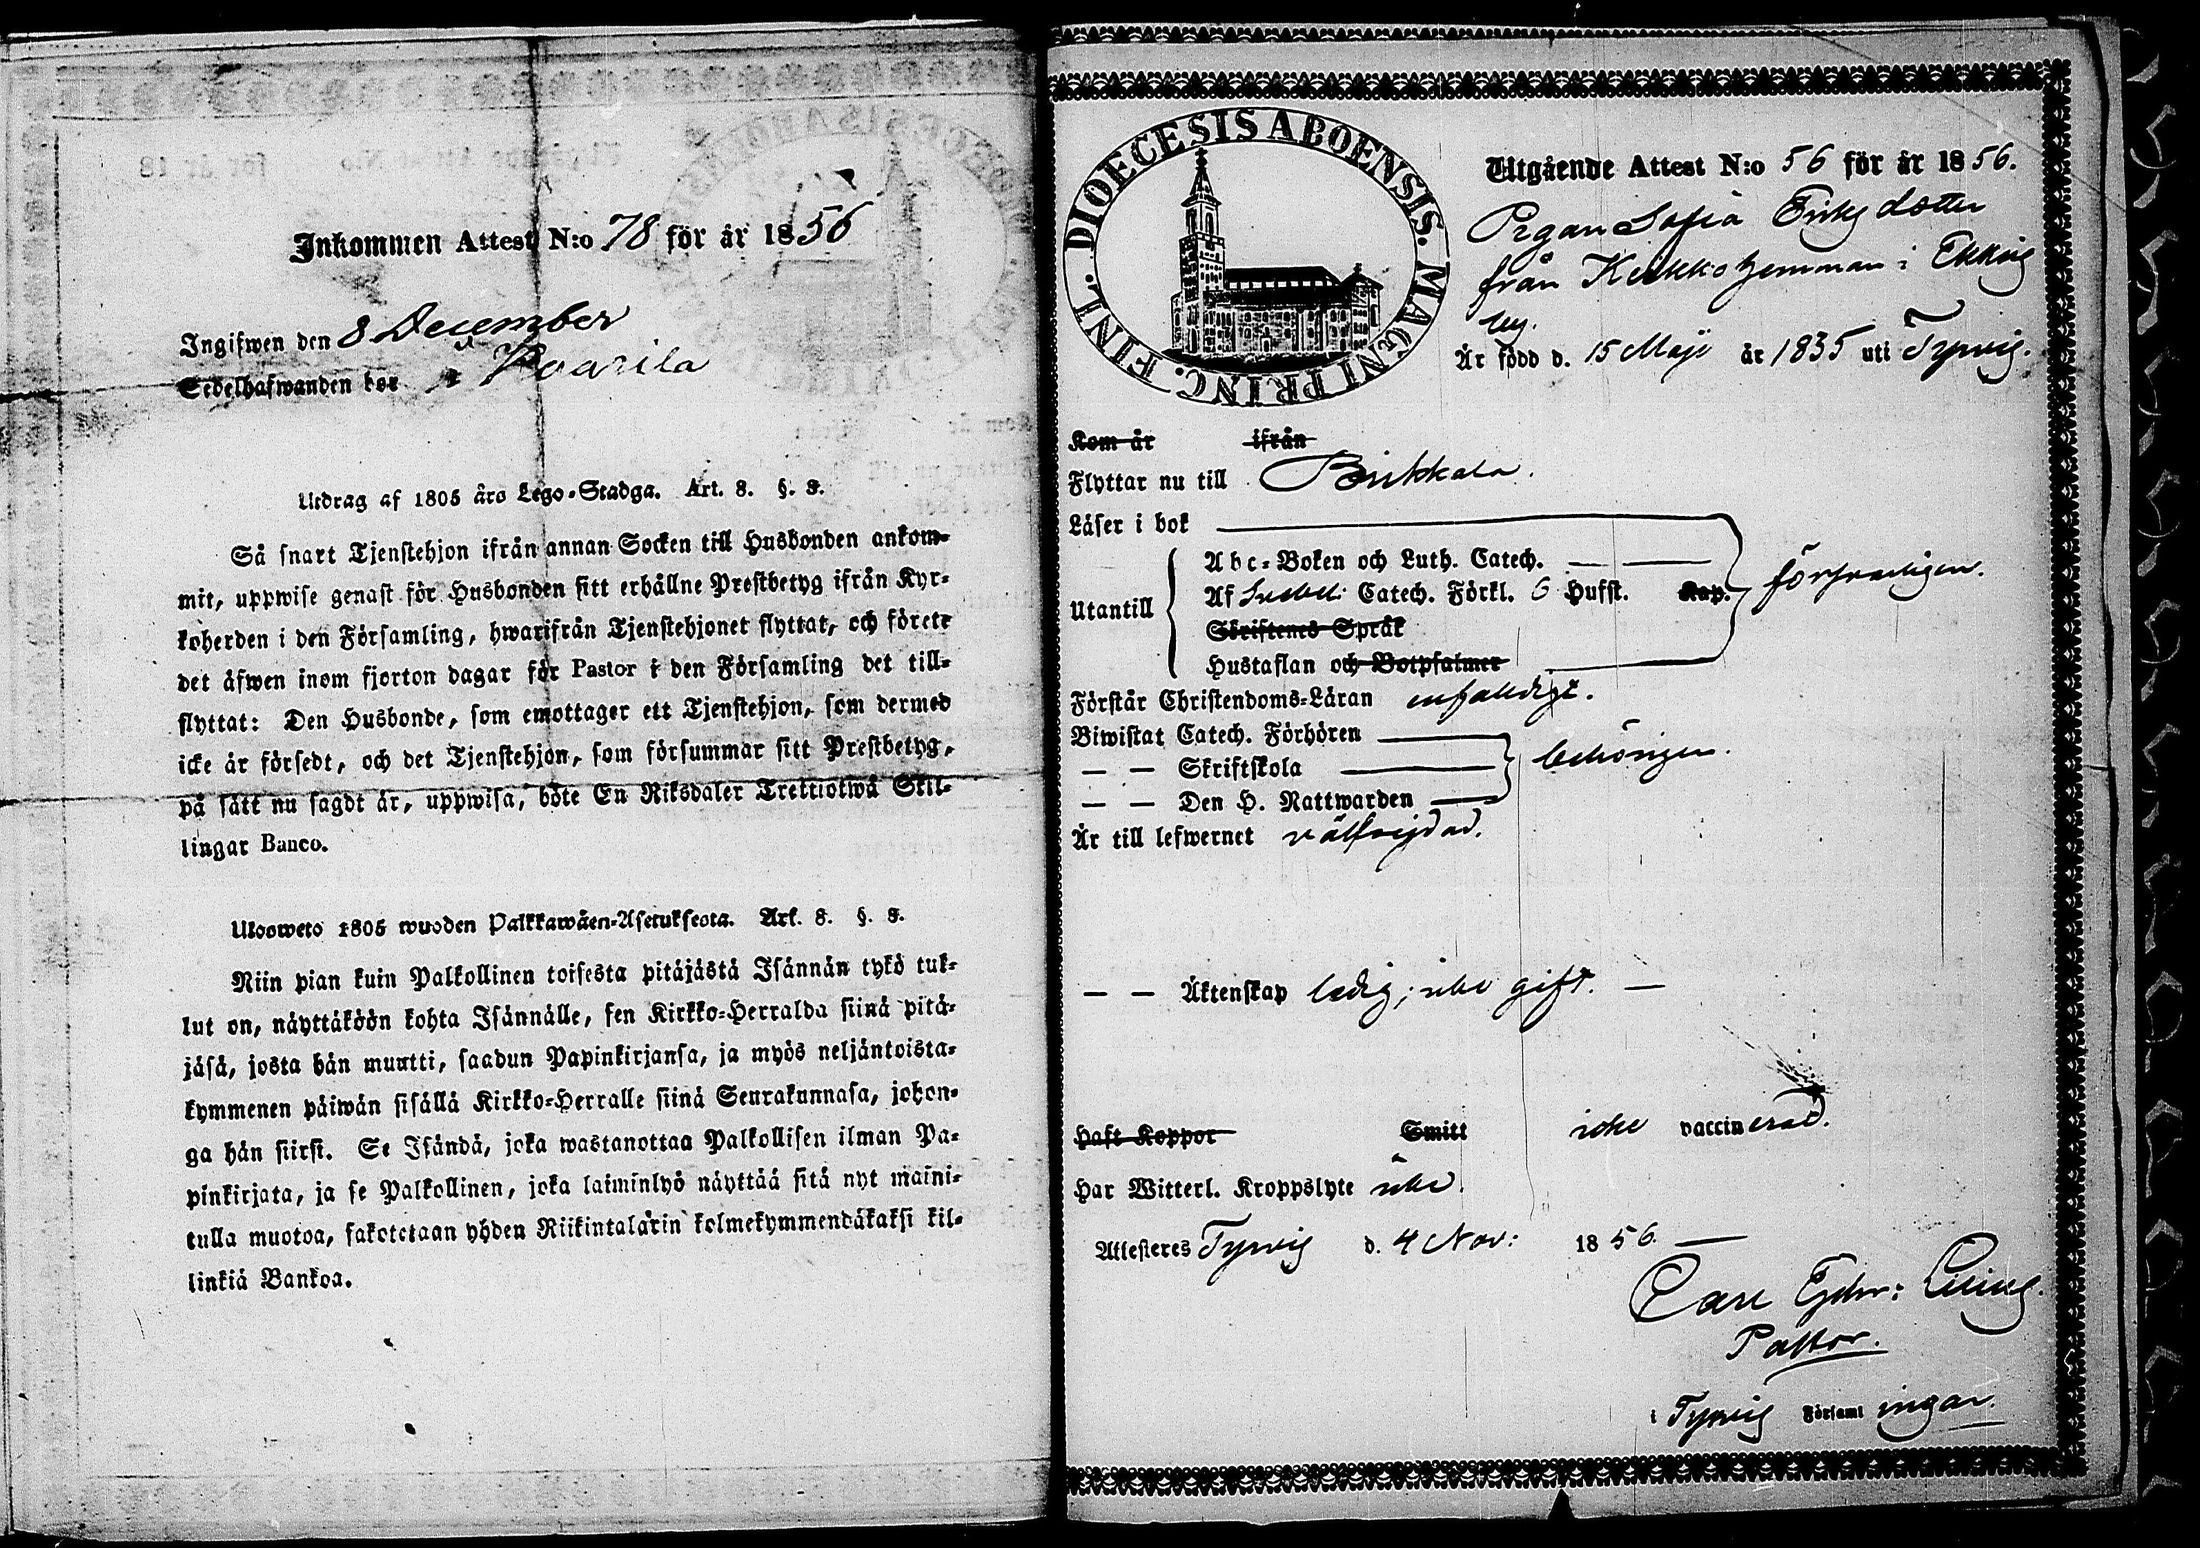 Inkommen Attest N:o 78 för år 1856
Ingifwen den 8 December
Sedelhafwanden bor i Kaarila
Utdrag af 1805 års Lego-Stadga. Art. 8. §. 8.
Så snart Tjenstehjon ifrån annan Socken till Husbonden ankom-
mit, uppwise genast för Husbonden sitt erhållne Prestbetyg ifrån Kyr-
koherden i den Församling, hwarifrån Tjenstehjonet flyttat, och förete
det äfwen inom fjorton dagar för Pastor i den Församling det till-
flyttat: Den Husbonde, som emottager ett Tjenstehjon, som dermed
icke är försedt, och det Tjenstehjon, som försummar sitt Prestbetyg,
på sätt nu sagdt är, uppwisa, böte En Riksdaler Trettiotwå Skil-
lingar Banco.
Uloswetö 1805 wuoden Palkkawäen-Asetuksesta. Art. 8. §. 8.
Niin pian kuin Palkollinen toisesta pitäjästä Isännän tykö tul-
lut on, näyttäköön kohta Isännälle, sen Kirkko-Herralda siinä pitä-
jäsä, josta hän muutti, saadun Papinkirjansa, ja myös neljäntoista-
kymmenen päiwän sisällä Kirkko-Herralle siinä Seurakunnasa, johon-
ga hän siirsi. Se Isändä, joka wastanottaa Palkollisen ilman Pa-
pinkirjata, ja se Palkollinen, joka laiminlyö näyttää sitä nyt maini-
tulla muotoa, sakotetaan yhden Riikintalarin kolmekymmendäkaksi kil-
linkiä Bankoa.
DIOECESIS ABOENSIS. MAGNI PRINC. FINL.
Utgående Attest N:o 56 för år 1856.
Pigan Sofia Eriksdotter
från Kirkko hemman i Ekkis
by.
Är född d. 15 Maji år 1835 uti Tyrvis.
Kom år ifrån
Flyttar nu till Birkkala.
Läser i bok
Abc-Boken och Luth. Catech.
Utantill Af Svebel: Catech. Förkl. 6 Hufst. Kap. försvarligen.
Skriftenes Språk
Hustaflan och Botpsalmer
Förstår Christendoms-Läran enfaldigt.
Biwistat Catech. Förhören
— — Skriftskola behörigen.
— — Den H. Nattwarden
Är till lefwernet välfrejdad.
— — Äktenskap ledig; icke gift. —
Haft Koppor Smitt icke vaccinerad.
Har Witterl. Kroppslyte icke.
Attesteres Tyrvis d. 4 Nov: 1856. —
Carl Edv:
Pastor.
i Tyrvis Församlingar.